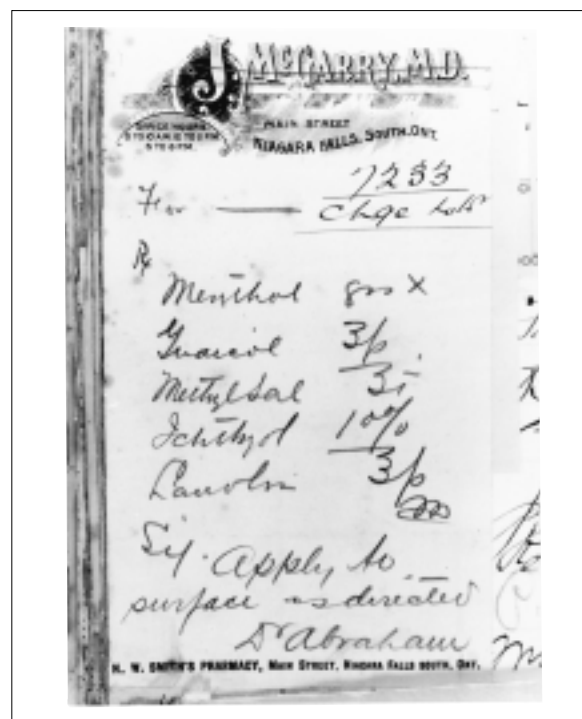 J McGARRY, M.D.
OFFICE HOURS
MAIN STREET
NIAGARA FALLS, SOUTH, ONT.
7233
For — Chge
Rx
Menthol grs X
Guaicol
Methyl Sal
Ichthyol 10%
Lanolin
Sig. Apply to
surface as directed
Dr Abraham
H. W. SMITH'S PHARMACY, MAIN STREET, NIAGARA FALLS SOUTH, ONT.